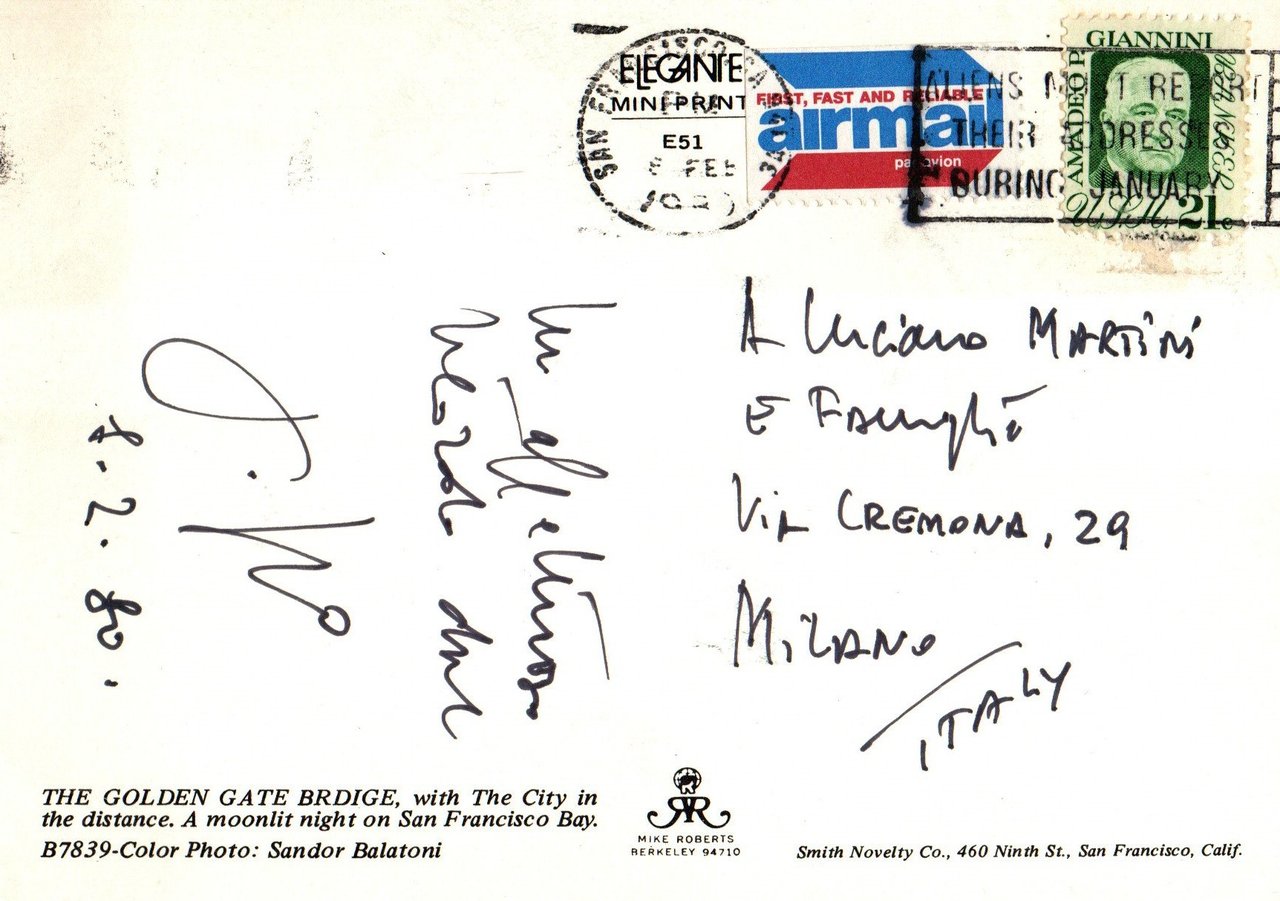 ELEGANTE
MINI-PRINT
E51
SAN FRANCISCO CA
FEB
FIRST, FAST AND RELIABLE
airmail
par avion
ALIENS MUST REPORT
THEIR ADDRESSES
DURING JANUARY
AMADEO P. GIANNINI
U.S.A. 21c
A Luciano MARTINI
E FAMIGLIA
Via CREMONA, 29
MILANO
ITALY
Un affettuoso
8.2.80.
THE GOLDEN GATE BRDIGE, with The City in
the distance. A moonlit night on San Francisco Bay.
B7839-Color Photo: Sandor Balatoni
MIKE ROBERTS
BERKELEY 94710
Smith Novelty Co., 460 Ninth St., San Francisco, Calif.